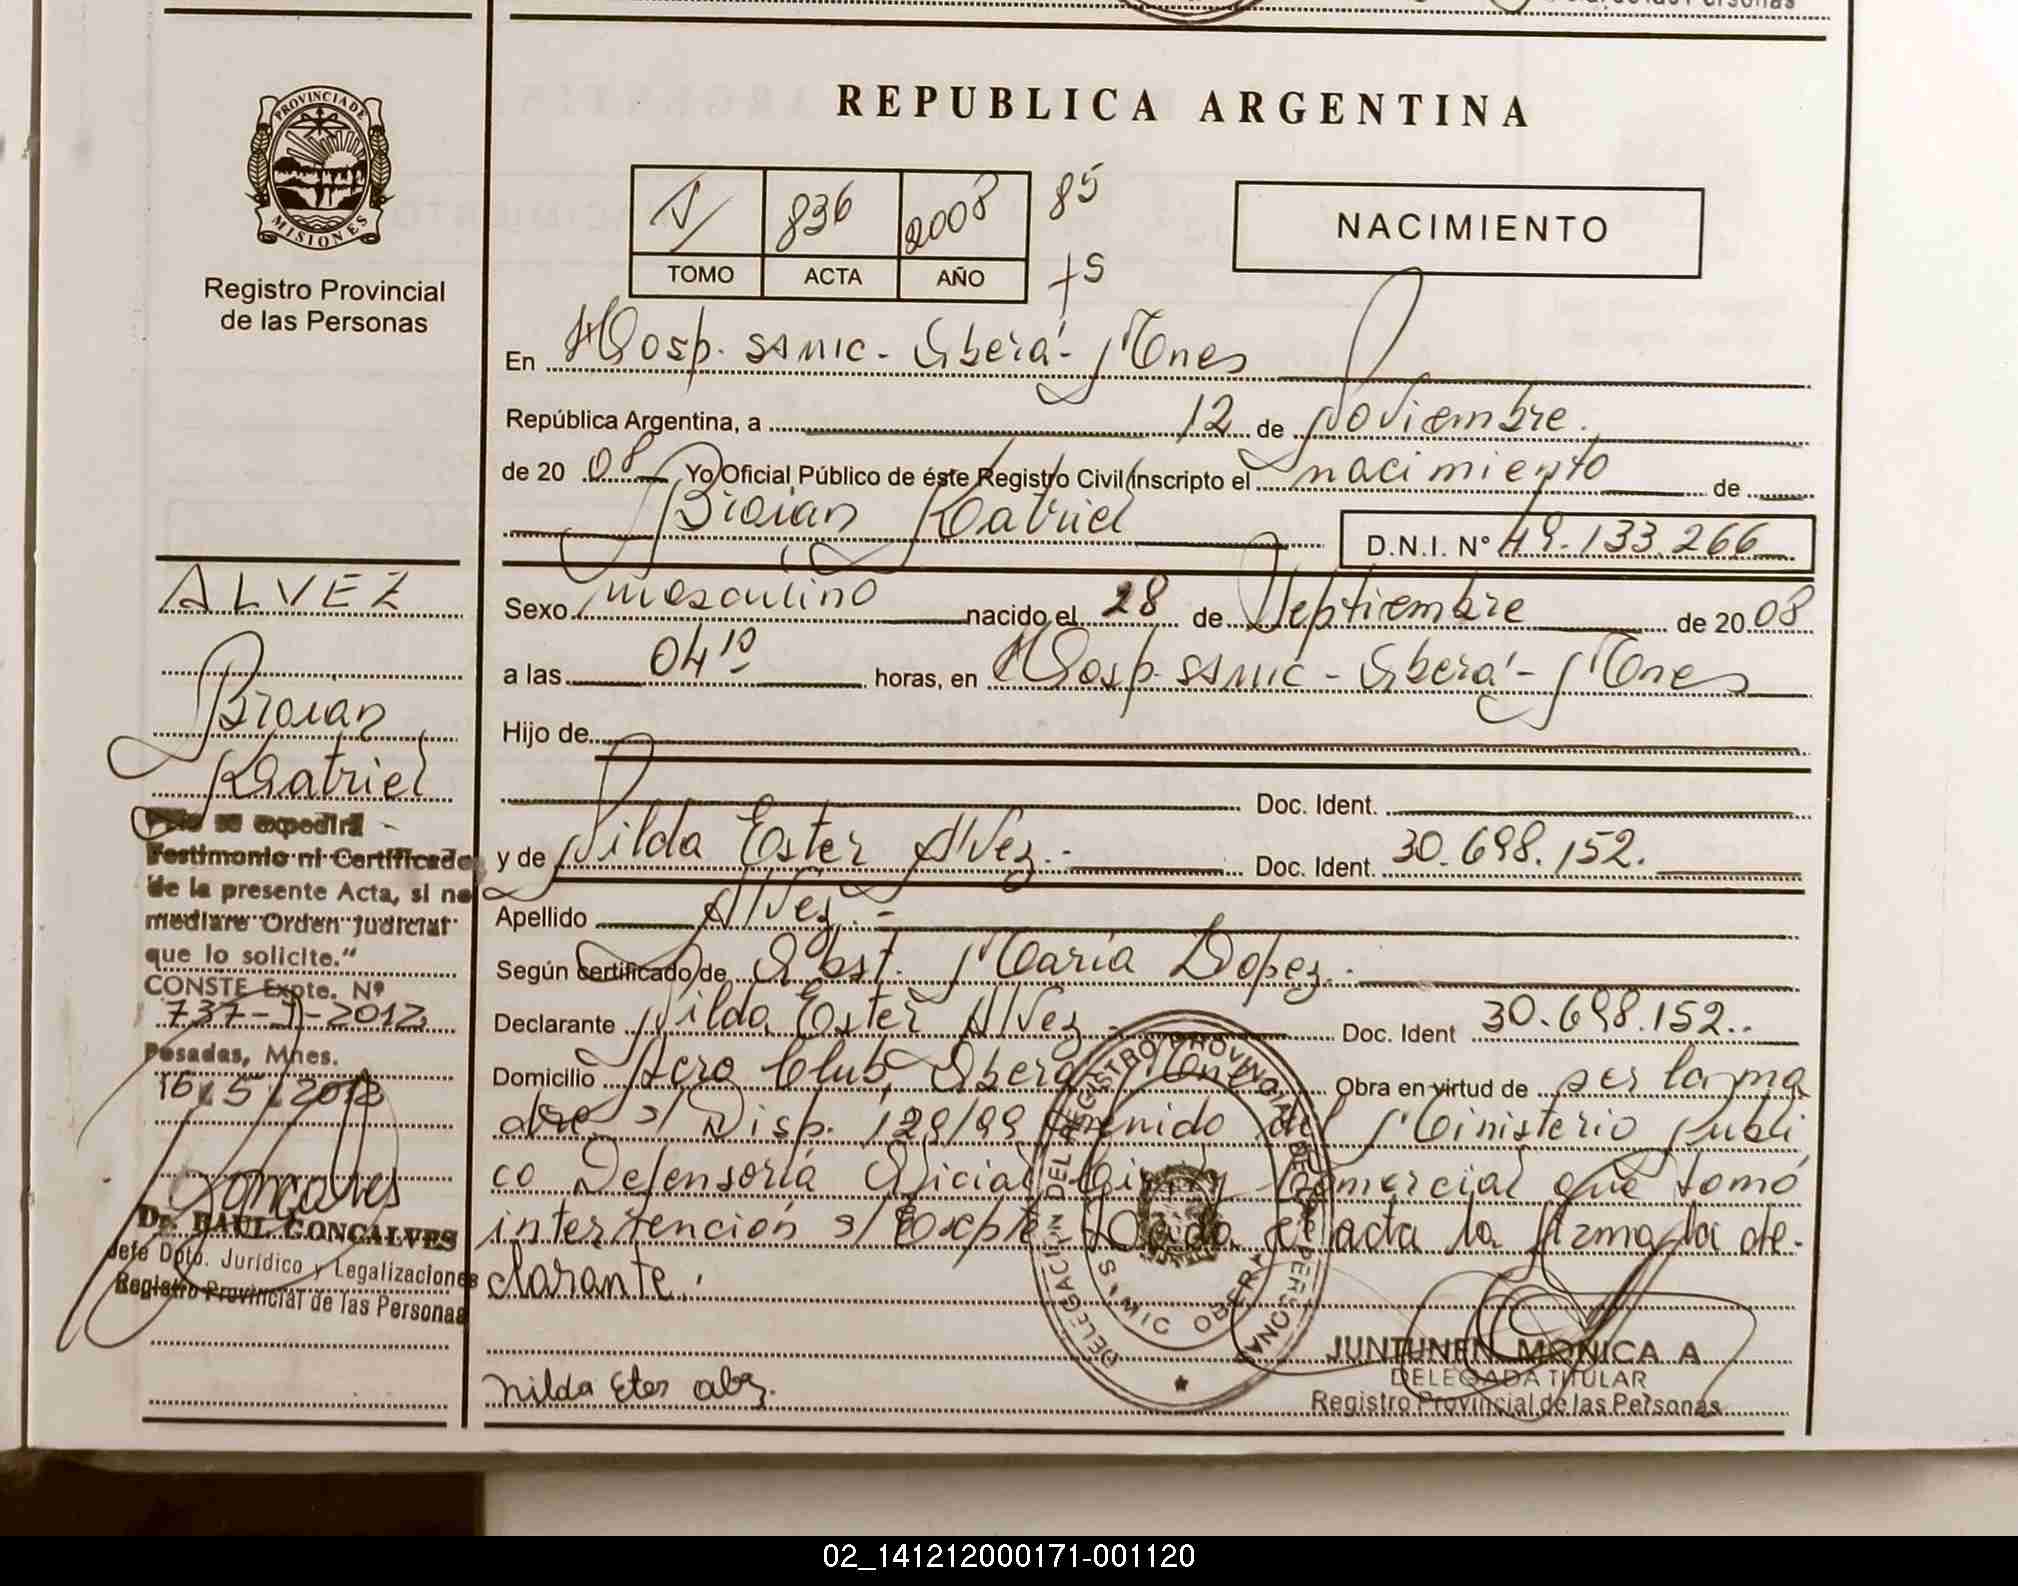 REPUBLICA ARGENTINA
PROVINCIA DE
MISIONES
Registro Provincial
de las Personas
836 2008 85
TOMO ACTA AÑO
NACIMIENTO
En Hosp. SAMIC - Oberá - Mnes
República Argentina, a 12 de Noviembre.
de 20 08 Yo Oficial Público de éste Registro Civil inscripto el nacimiento de
Braian Katriel D.N.I. Nº 49.133.266
Sexo masculino nacido el 28 de Septiembre de 20 08
a las 04 10 horas, en Hosp. SAMIC - Oberá - Mnes
Hijo de
Doc. Ident.
y de Nilda Ester Alvez.- Doc. Ident. 30.698.152.
Apellido Alvez.-
Según certificado de Obst. María Lopez.-
Declarante Nilda Ester Alvez Doc. Ident 30.698.152..
Domicilio Aero Club, Oberá Mnes Obra en virtud de ser la ma
dre s/ Disp. 129/99 del Ministerio Públi
co Defensoría Oficial Civil y Comercial que tomó
intervención s/ Expte Leída el acta la firma la de-
clarante.
Nilda Ester
JUNTUNEN MONICA A
DELEGADA TITULAR
Registro Provincial de las Personas
DELEGACION DEL REGISTRO PROVINCIAL DE LAS PERSONAS
OBERA
ALVEZ
Braian
Katriel
se expedirá
Testimonio ni Certificado
de la presente Acta, si no
mediare Orden Judicial
que lo solicite."
CONSTE Expte. Nº
737-J-2012
Posadas, Mnes.
16 5
Goncalves
Dr. RAUL GONCALVES
Jefe Dpto. Jurídico y Legalizaciones
Registro Provincial de las Personas
02_141212000171-001120